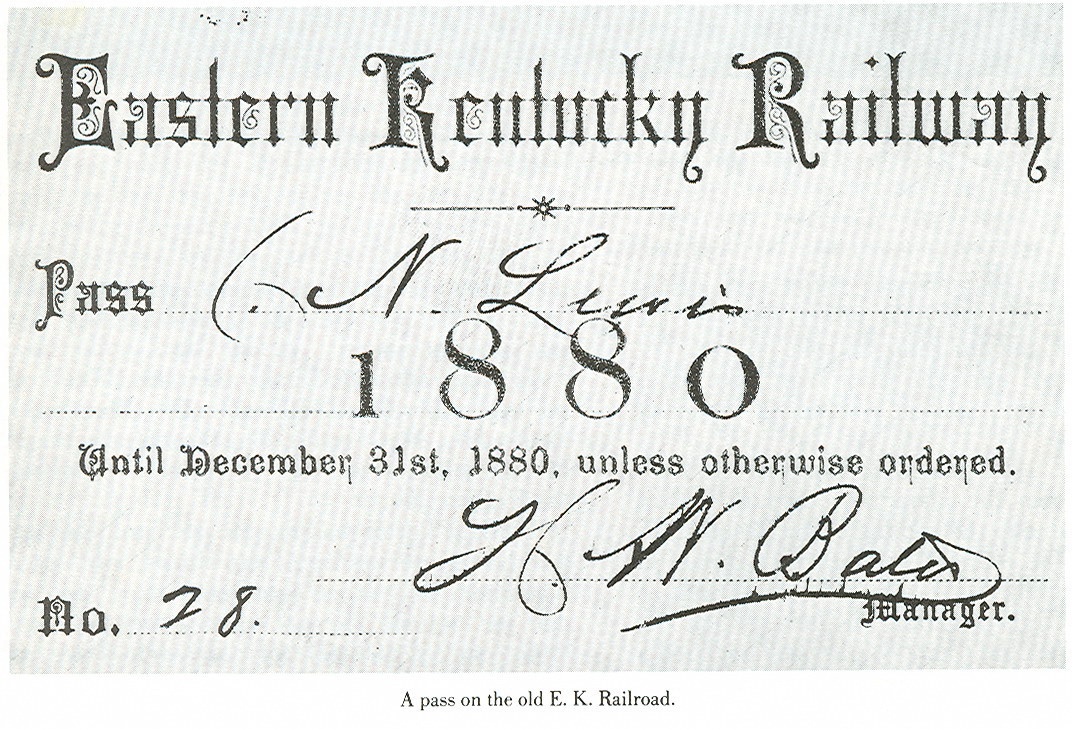 Eastern Kentucky Railway
Pass C. N. Lewis
1880
Until December 31st, 1880, unless otherwise ordered.
H. W. Bates
No. 28. Manager.
A pass on the old E. K. Railroad.